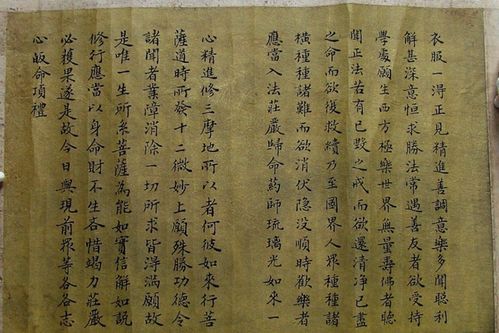 衣服一得正見精進善調意樂多聞照利
解甚深意恒求勝法常遇善友者欲受持
學處願生西方極樂世界無量壽佛者聽
聞正法若有已毀之戒而欲還清淨已盡
之命而欲復救續乃至國界人界種種諸
橫種種諸難而欲消伏隱没順時歡樂者
應當入法莊嚴歸命藥師琉璃光如來一
心精進修三摩地所以者何彼如來行菩
薩道時所發十二微妙上願殊勝功德令
諸聞者業障消除一切所求皆得滿願故
是唯一生所系菩薩為能如實信解如説
修行應當以身命財不生吝惜竭力莊嚴
必獲果遂是故今日與現前眾等各各志
心皈命頂禮